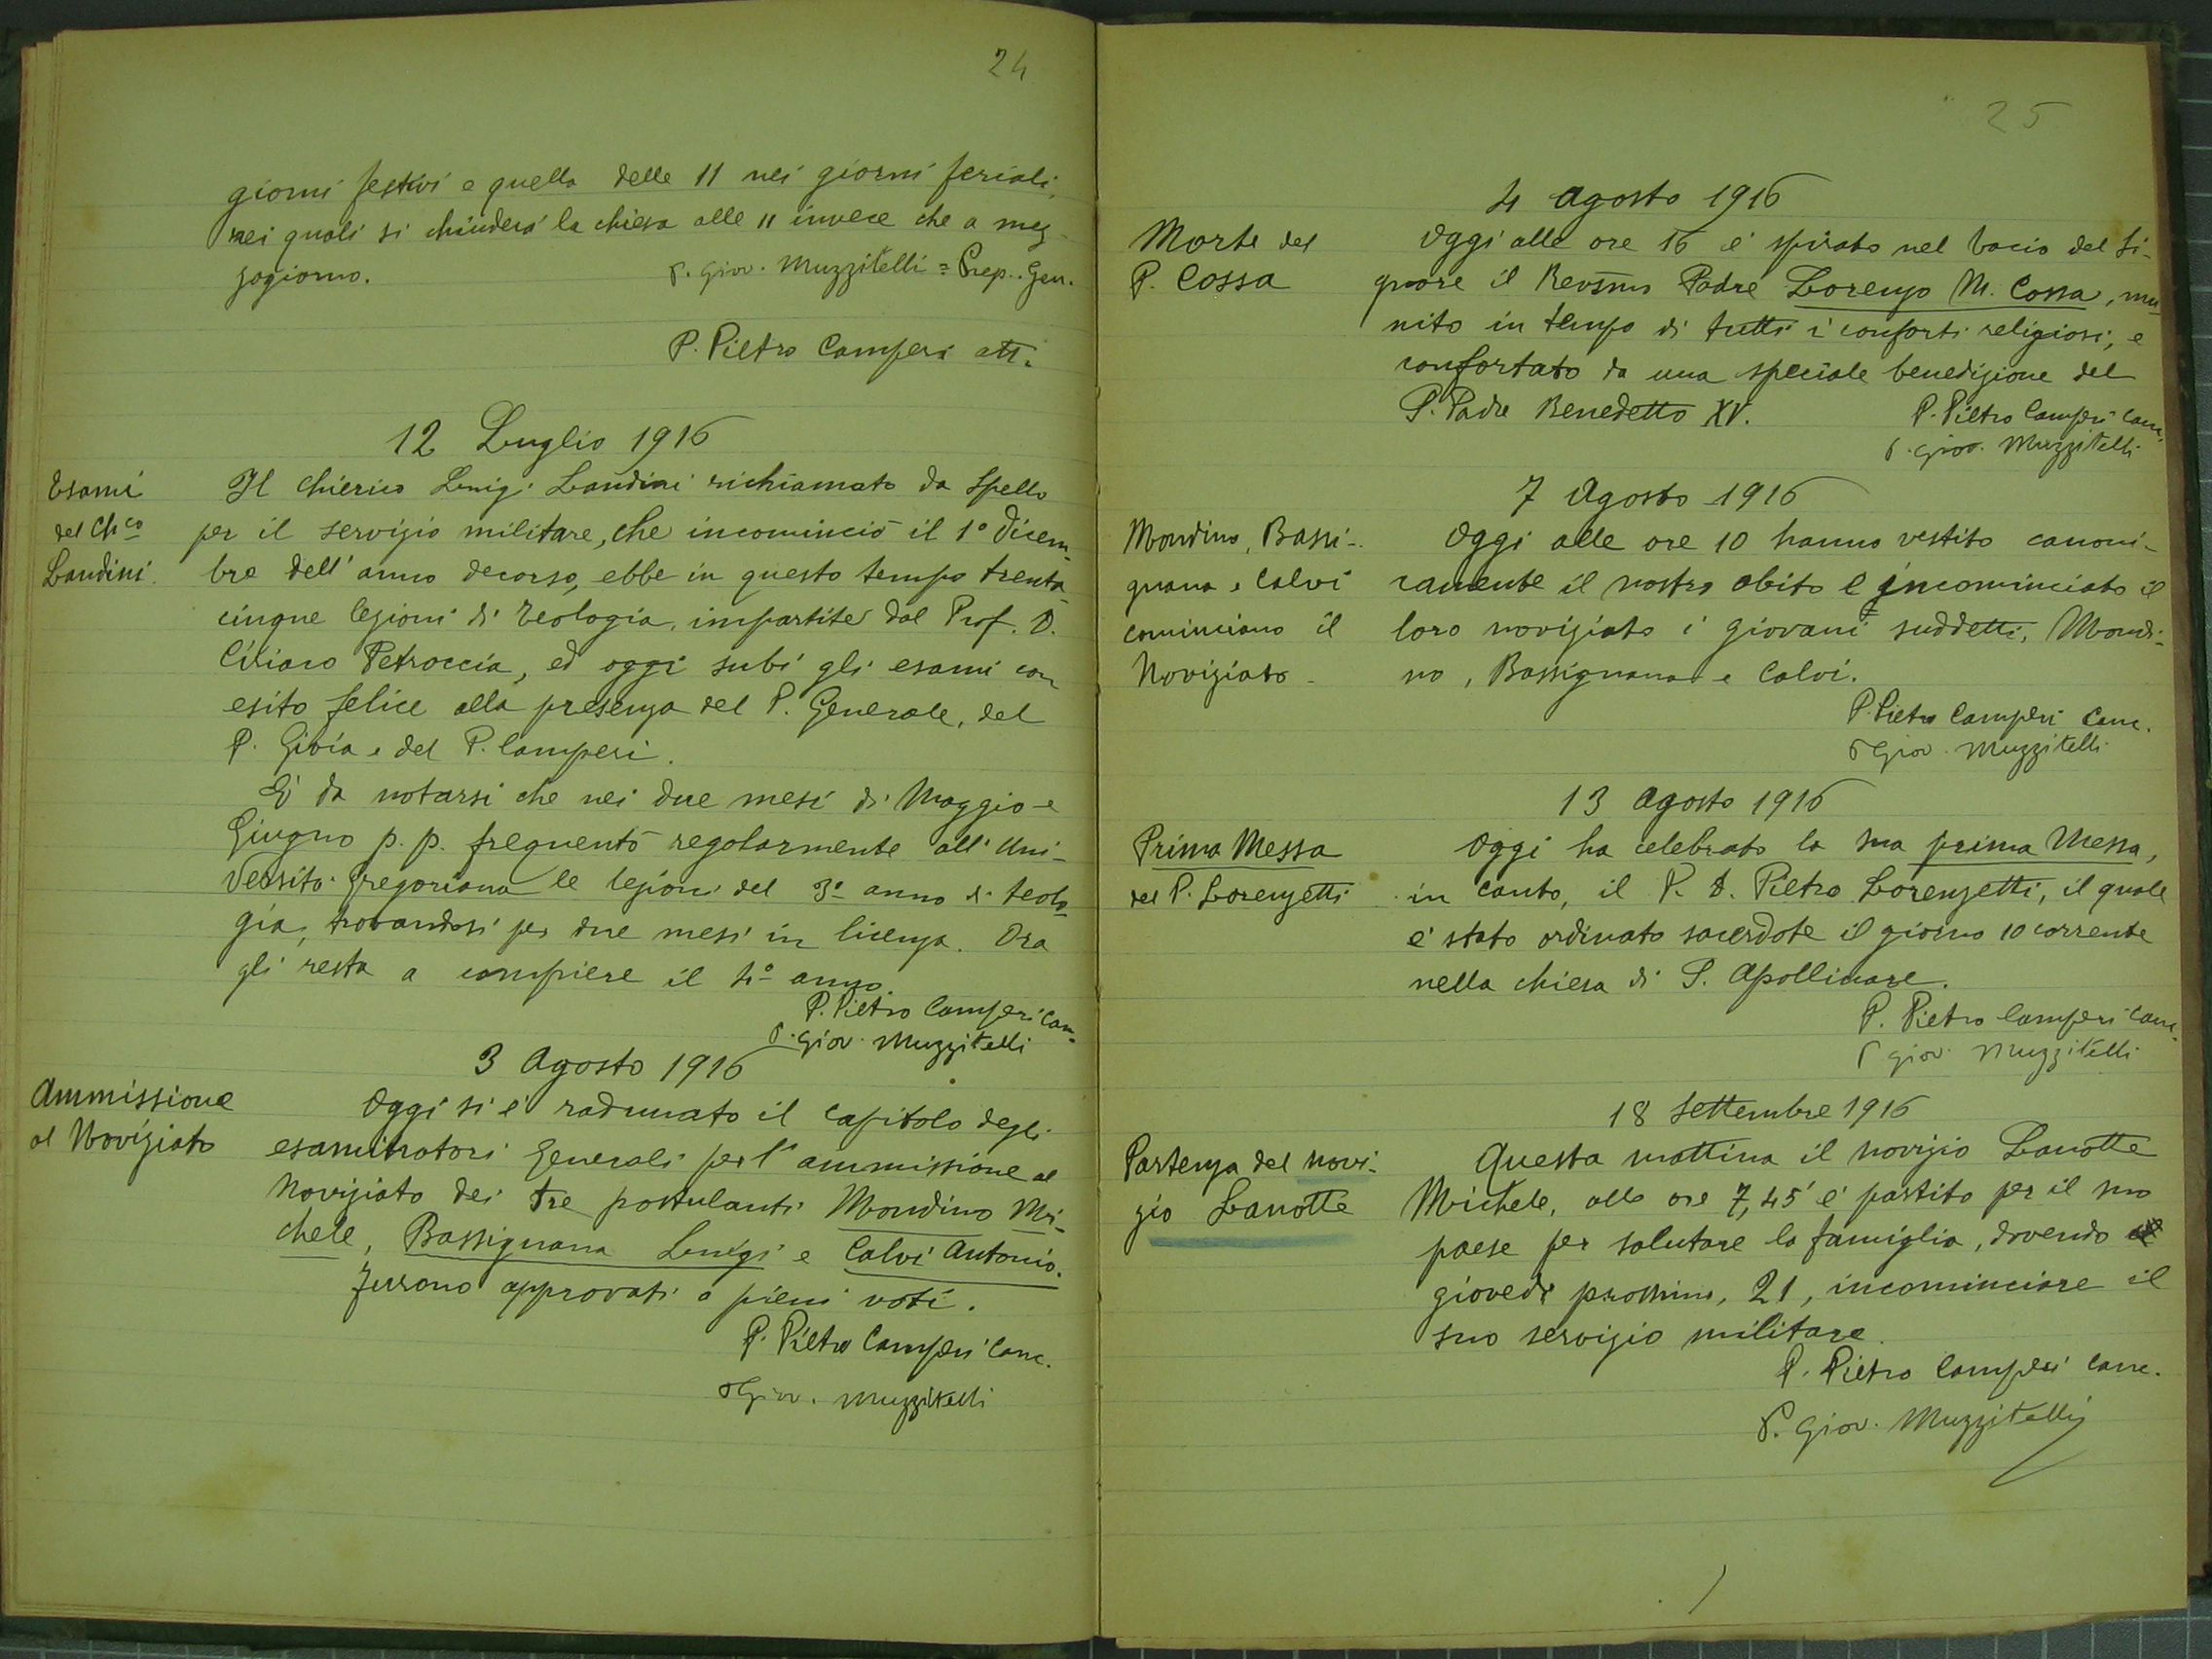 24
giorni festivi e quella delle 11 nei giorni feriali,
nei quali si chiuderà la chiesa alle 11 invece che a mez-
zogiorno.
P. Giov. Muzzitelli = Prep. Gen.
P. Pietro Camperi att.
12 Luglio 1916
Esami
del Chco
Landini.
Il chierico Luigi Landini richiamato da Spello
per il servizio militare, che incominciò il 1° Dicem-
bre dell'anno decorso, ebbe in questo tempo trenta-
cinque lezioni di teologia, impartite dal Prof. D.
Ciriaco Petroccia, ed oggi subì gli esami con
esito felice alla presenza del P. Generale, del
P. Gioia e del P. Camperi.
È da notarsi che nei due mesi di Maggio e
Giugno p. p. frequentò regolarmente all'Uni-
versità Gregoriana le lezioni del 3° anno di teolo-
gia, trovandosi per due mesi in licenza. Ora
gli resta a compiere il 4° anno.
P. Pietro Camperi Canc.
P. Giov. Muzzitelli
3 Agosto 1916
Ammissione
al Noviziato
Oggi si è radunato il capitolo degli
esaminatori Generali per l'ammissione al
Noviziato dei tre postulanti Mondino Mi-
chele, Bassignana Luigi e Calvi Antonio.
Furono approvati a pieni voti.
P. Pietro Camperi Canc.
P Giov. Muzzitelli
25
4 Agosto 1916
Morte del
P. Cossa
Oggi alle ore 16 è spirato nel bacio del Si-
gnore il Revsmo Padre Lorenzo M. Cossa, mu-
nito in tempo di tutti i conforti religiosi, e
confortato da una speciale benedizione del
S. Padre Benedetto XV.
P. Pietro Camperi Canc.
P. Giov. Muzzitelli
7 Agosto 1916
Mondino, Bassi-
gnana e Calvi
cominciano il
Noviziato -
Oggi alle ore 10 hanno vestito canoni-
camente il nostro abito e incominciato il
loro noviziato i giovani suddetti, Mondi-
no, Bassignana e Calvi.
P. Pietro Camperi Canc.
P Giov. Muzzitelli
13 Agosto 1916
Prima Messa
del P. Lorenzetti
Oggi ha celebrato la sua prima Messa,
in canto, il P. D. Pietro Lorenzetti, il quale
è stato ordinato sacerdote il giorno 10 corrente
nella chiesa di S. Apollinare.
P. Pietro Camperi Canc.
P Giov. Muzzitelli
18 Settembre 1916
Partenza del novi-
zio Lanotte
Questa mattina il novizio Lanotte
Michele, alle ore 7,45 è partito per il suo
paese per salutare la famiglia, dovendo
giovedì prossimo, 21, incominciare il
suo servizio militare.
P. Pietro Camperi Canc.
P. Giov. Muzzitelli